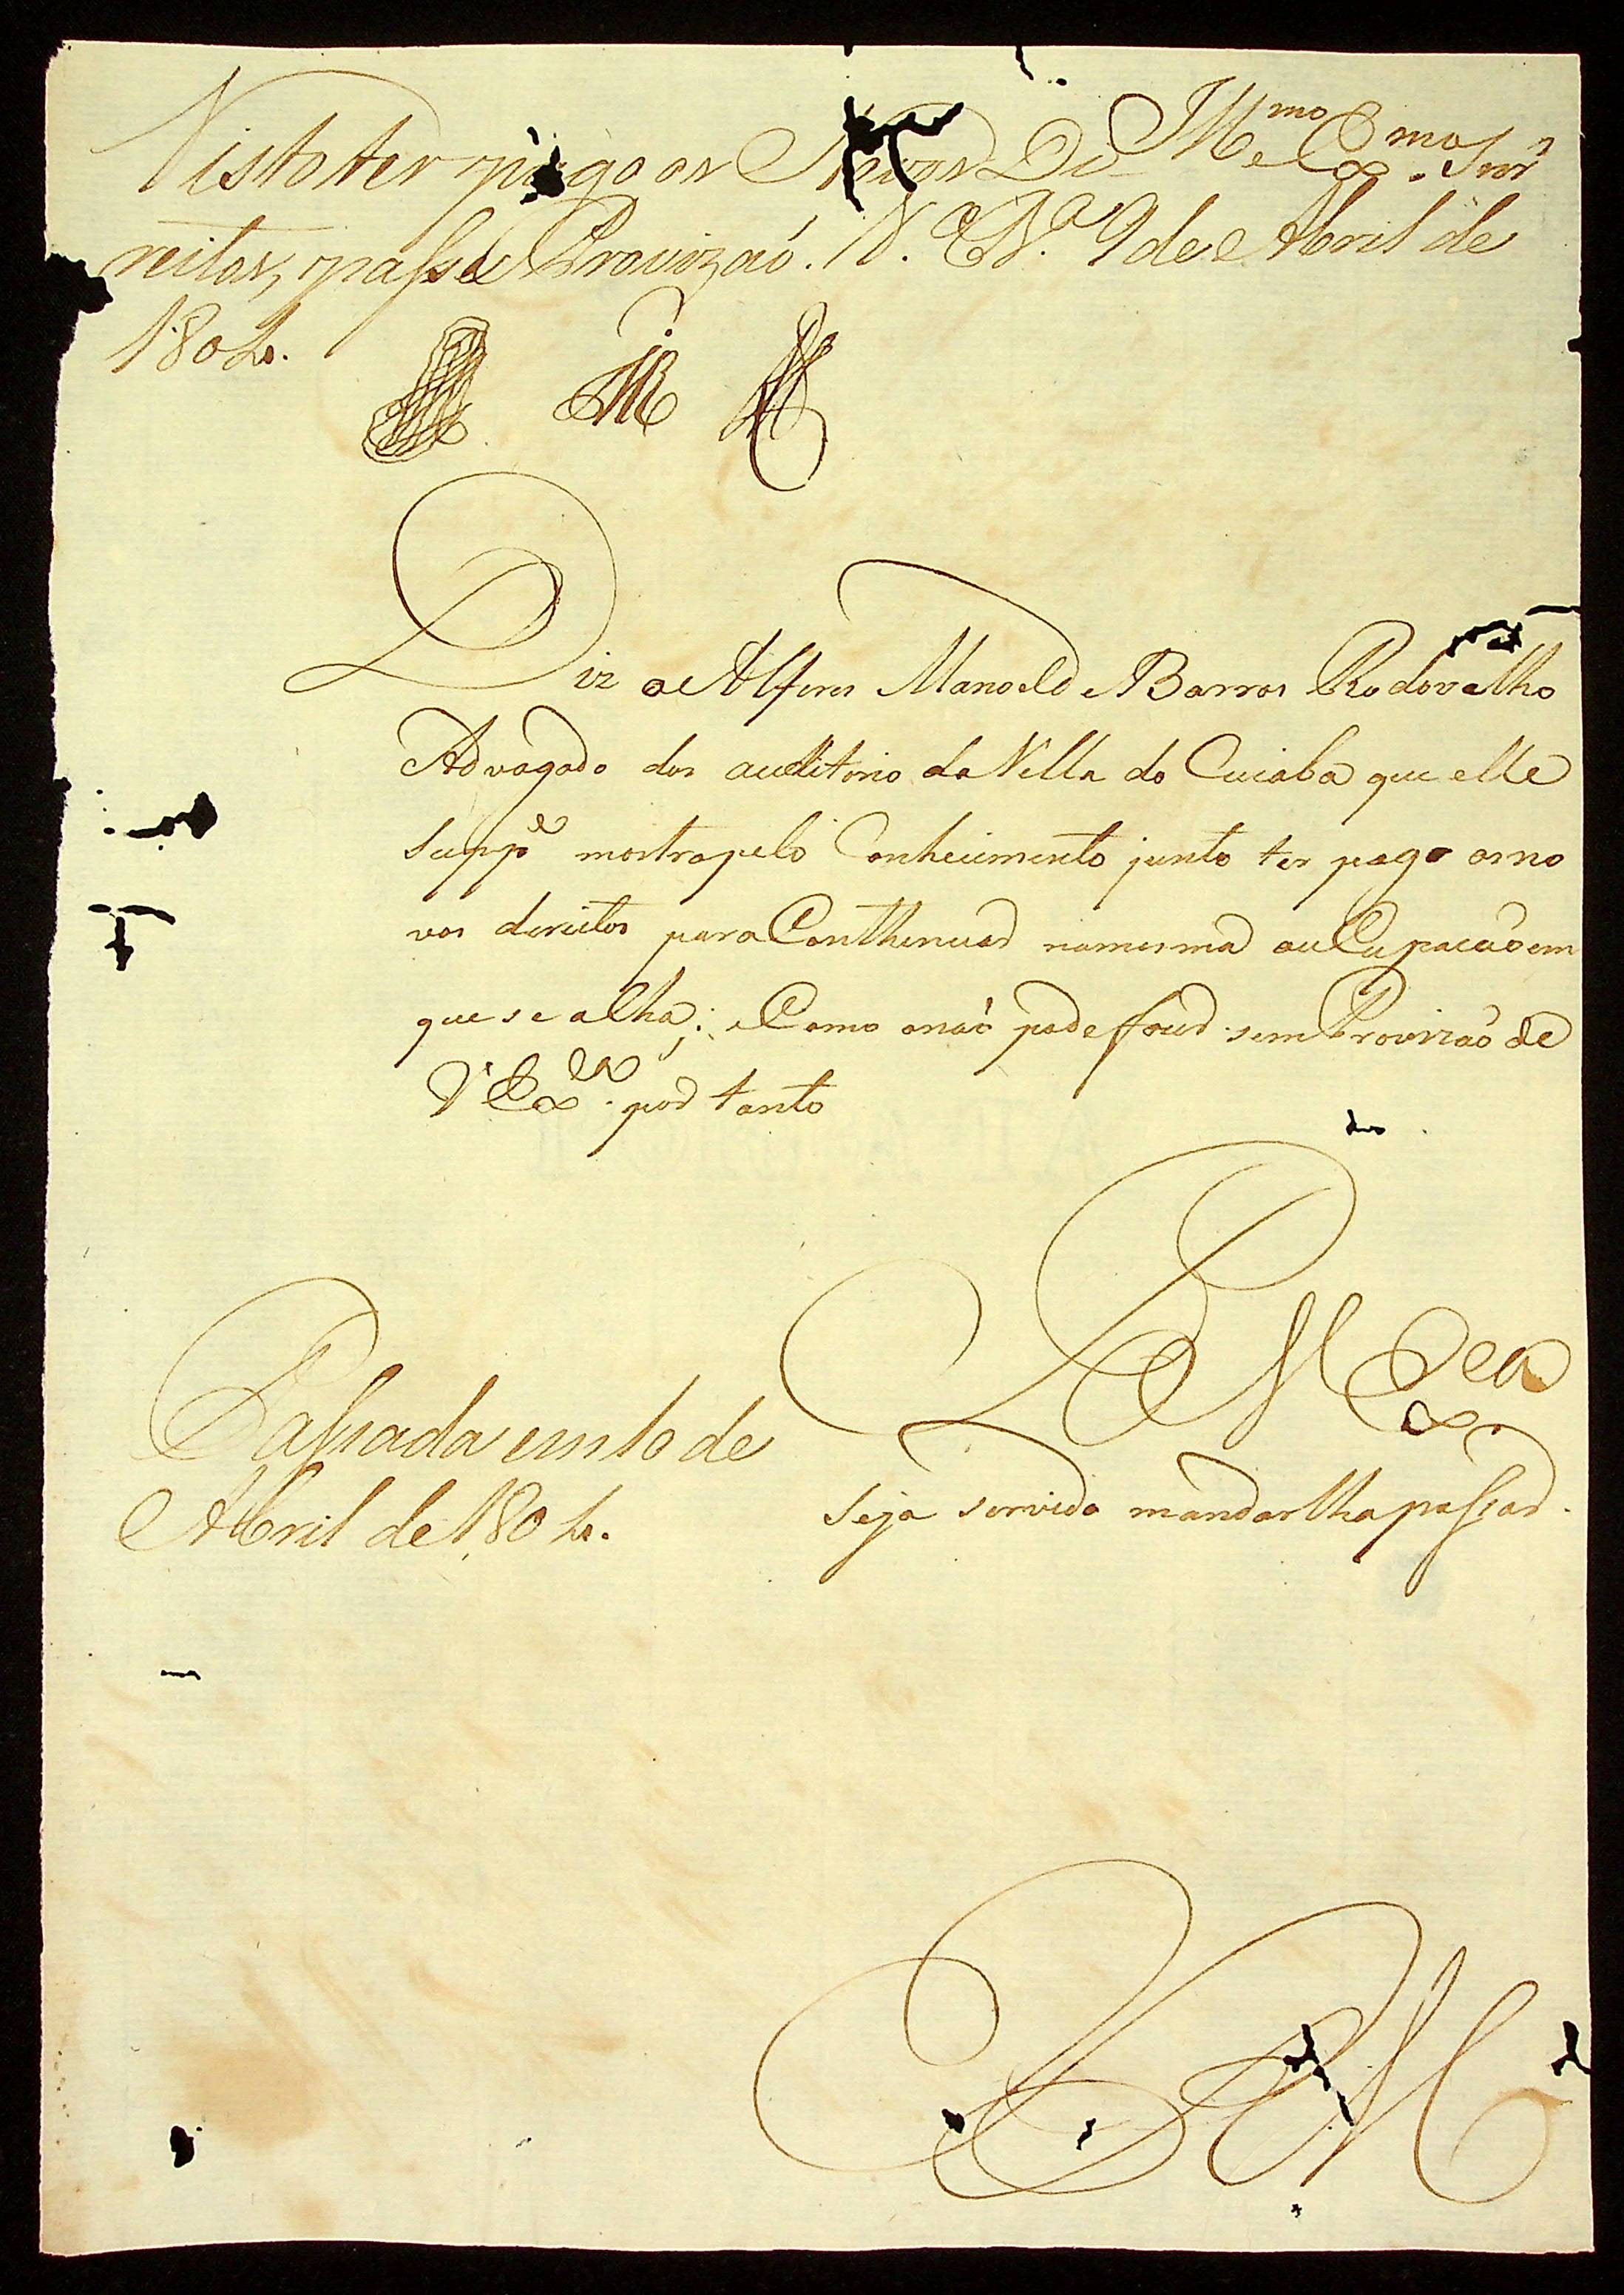 Visto ter pago os Novos Di
Illmo e Exmo Snr
reitos, passe Provizaõ. V.ª 9 de Abril de
1802.
Diz o Alferes Manoel de Barros Rodovalho
Advogado dos auditorio da Villa do Cuiaba que elle
Suppe mostra pelo Conhecimento junto ter pago os no
vos direitos para Conthenuar na mesma ocCupacaõ em
que se alha; e Como o naõ pode fazer sem Provizaõ de
V Exca por tanto
P a V Exca
seja servido mandar lha passar.
Passada em 10 de
Abril de 1802.
E R M